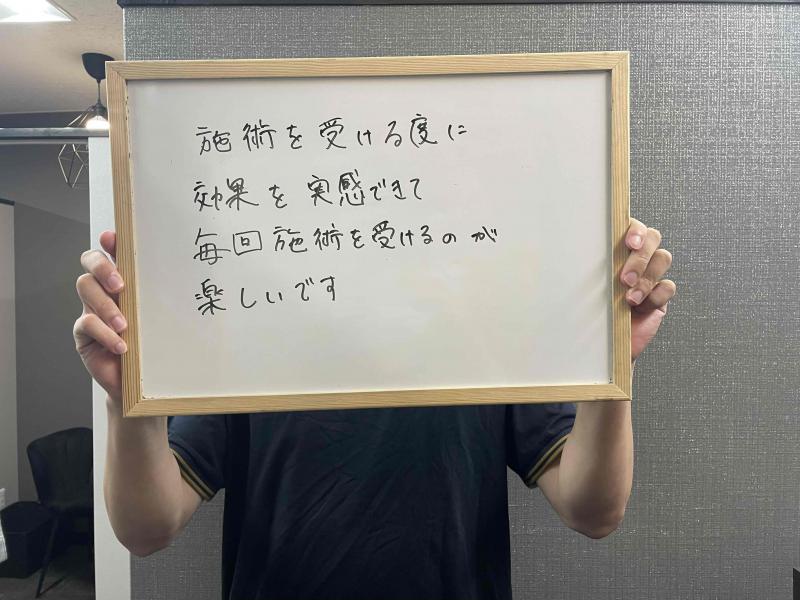 施術を受ける度に
効果を実感できて
毎回施術を受けるのが
楽しいです